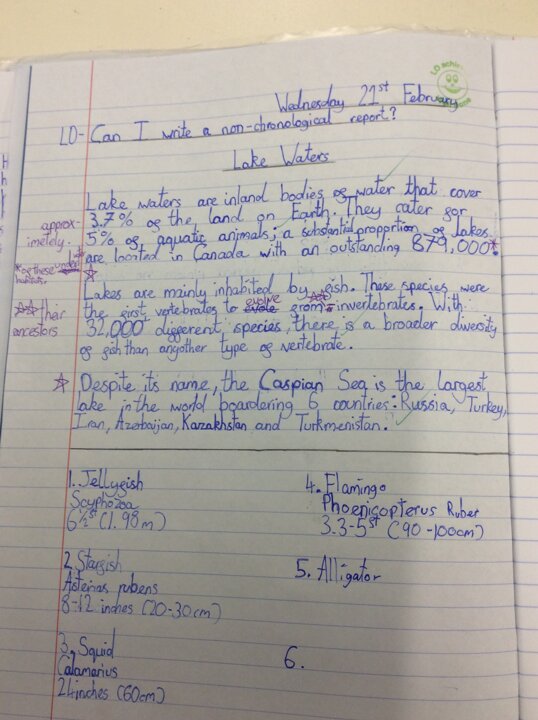 Wednesday 21st February
LO- Can I write a non-chronological report?
Lake Waters
Lake waters are inland bodies of water that cover
3.7% of the land on Earth. They cater for
5% of aquatic animals; a substantial proportion of lakes
are located in Canada with an outstanding 879,000*.
approx-
imetely.
*of these
Lakes are mainly inhabited by fish. These species were
the first vertebrates to evole evolve from ☆☆ invertebrates. With
☆☆ ther
ancestors
32,000 different species, there is a broader diversity
of fish than anyother type of vertebrate.
☆ Despite its name, the Caspian Sea is the largest
lake in the world boardering 6 countries: Russia, Turkey,
Iran, Azebaijan, Kazakhstan and Turkmenistan.
1. Jellyfish
Scyphozoa
6½ft (1.98m)
2. Starfish
Asterias rubens
8-12 inches (20-30cm)
3. Squid
Calamarius
24inches (60cm)
4. Flamingo
Phoenicopterus Ruber
3.3-5ft (90-100cm)
5. Alligator
6.